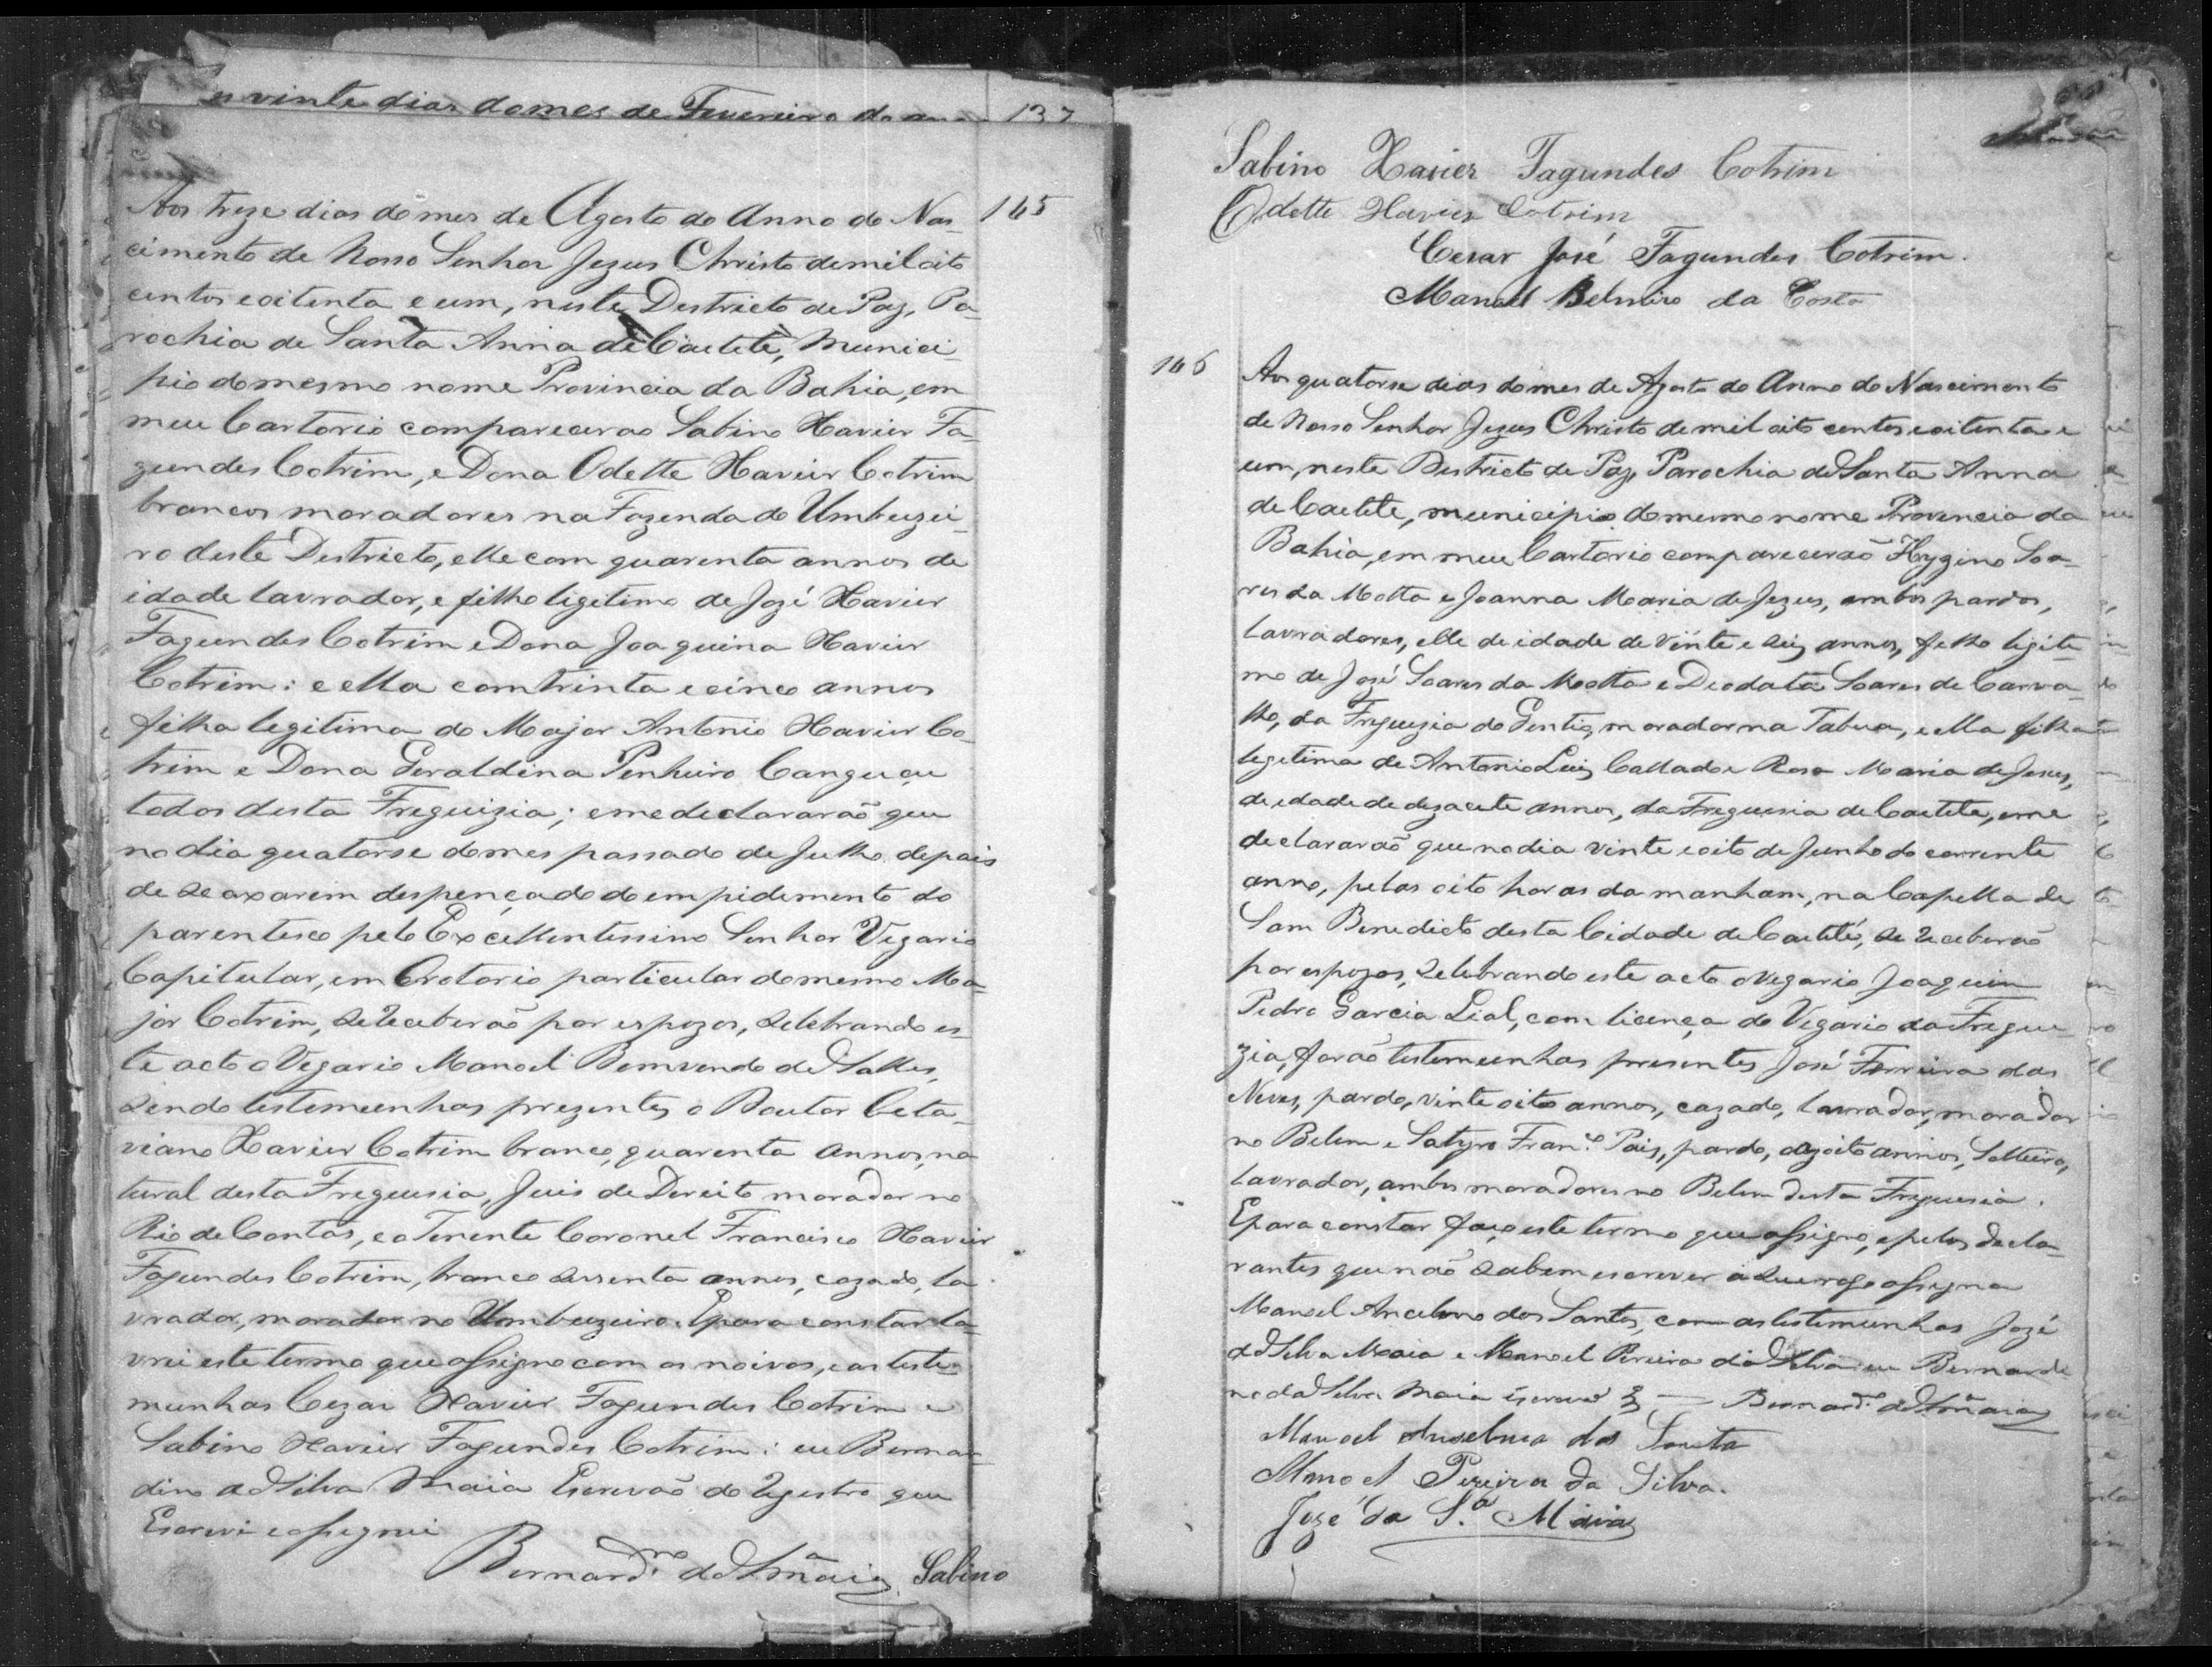 vinte dias do mes de Fevereiro do 137
Aos treze dias do mes de Agosto do Anno do Nas- 165
cimento de Nosso Senhor Jezus Christo de mil oito
centos e oitenta e um, neste Destricto de Paz, Pa-
rochia de Santa Anna de Caetité, Munici
pio do mesmo nome Provincia da Bahia, em
meu Cartorio comparecerao Sabino Xavier Fa-
gundes Cotrim, e Dona Odette Xavier Cotrim
brancos moradores na Fazenda do Umbuzei-
ro deste Destricto, elle com quarenta annos de
idade lavrador, e filho ligitimo de Jozé Xavier
Fagundes Cotrim e Dona Joaquina Xavier
Cotrim: e ella com trinta e cinco annos
filha legitima do Major Antonio Xavier Co-
trim e Dona Geraldina Penheiro Canguçu
todos desta Freguizia; e me declararão que
no dia quatorse do mes passado de Julho depois
de se axarem despençado do empidemento do
parentesco pelo Excellentissimo Senhor Vigario
Capitular, em Oratorio particular do mesmo Ma-
jor Cotrim, se receberão por espozos, celebrando es-
te acto o Vigario Manoel Bemvendo de Salles,
sendo testemunhas prezentes o Doutor Cota-
viano Xavier Cotrim branco, quarenta annos, na
tural desta Freguesia, Juis de Dereito morador no
Rio de Contas, e o Tenente Coronel Francisco Xavier
Fagundes Cotrim, branco sessenta annos, cazado, la
vrador, morador no Umbuzeiro. E para constar la-
vrei este termo que assigno com os noivos, e as teste-
munhas Cezar Xavier Fagundes Cotrim e
Sabino Xavier Fagundes Cotrim: eu Bernar-
dino da Silva Maia Escrevão do Registro que
Escrevi e assignei
Bernard.no da S.a Maia Sabino
Sabino Xavier Fagundes Cotrim
Odette Xavier Cotrim
Cesar José Fagundes Cotrim.
Manoel Belmiro da Costa
166 Aos quatorse dias do mes de Agosto do Anno do Nascimento
de Nosso Senhor Jezus Christo de mil oito centos e oitenta e
um, neste Destricto de Paz, Parochia de Santa Anna
de Caetete, municipio do mesmo nome Provencia da
Bahia, em meu Cartorio comparecerão Hygino Soa-
res da Motta e Joanna Maria de Jezus, ambos pardos,
lavradores, elle de idade de vinte e seis annos, filho legiti
mo de José Soares da Motta e Deodata Soares de Carva-
lho, da Freguezia do Gentio, morador na Tabua, e ella filha
legetima de Antonio Luiz Callado e Rosa Maria de Jesus,
de idade de dezacete annos, da Freguesia de Caetete, e me
declararão que no dia vinte e oito de Junho do corrente
anno, pelas oito horas da manham, na Capella de
Sam Benedicto desta Cidade de Caetité, se receberão
por espozos, celebrando este acto o Vegario Joaquim
Pedro Garcia Leal, com licença do Vigario da Fregue
zia, forão testemunhas presentes José Ferreira das
Neves, pardo, vinte oito annos, cazado, lavrador, morador
no Belem e Satyro Fran.co Pais, pardo, dezoito annos, solteiro,
lavrador, ambos moradores no Belem desta Freguesia.
E para constar faço este termo que assigno, e pelos decla-
rantes que não sabem escrever a seu rogo assigna
Manoel Ancelmo dos Santos, com as testemunhas Jozé
da Silva Maia e Manoel Pereira da Silva eu Bernardi
no da Silva Maia escrevi Bernard.o da S.a Maia
Manoel Anselmo dos Santos
Manoel Pereira da Silva.
José da S.a Maia